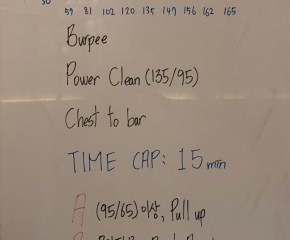 59 81 102 120 135 149 156 162 165
Burpee
Power Clean (135/95)
Chest to bar
TIME CAP: 15 min
A (95/65)이상, Pull up